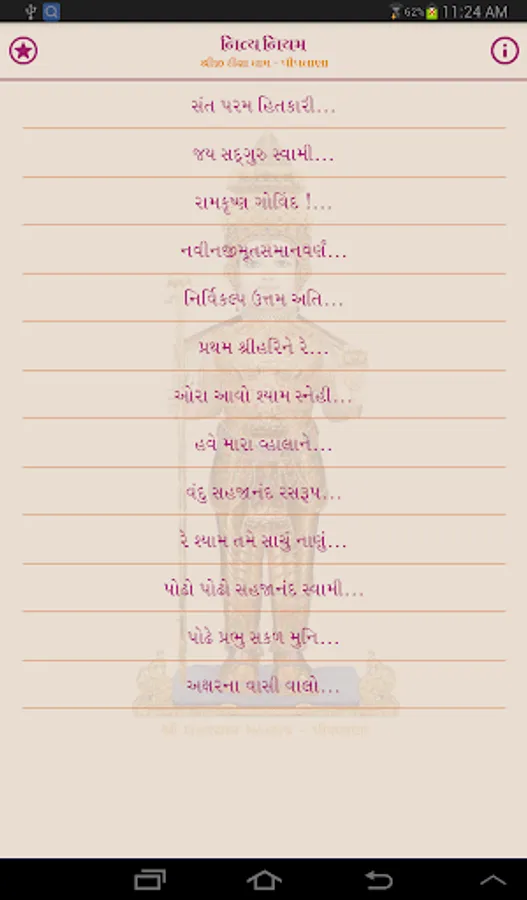 62% 11:24 AM
નિત્ય નિયમ
શ્રીજી દીક્ષા ધામ - પીપલાણા
સંત પરમ હિતકારી...
જય સદ્‌ગુરુ સ્વામી...
રામકૃષ્ણ ગોવિંદ !...
નવીનજીમૂતસમાનવર્ણં...
નિર્વિકલ્પ ઉત્તમ અતિ...
પ્રથમ શ્રીહરિને રે...
ઓરા આવો શ્યામ સ્નેહી...
હવે મારા વ્હાલાને...
વંદુ સહજાનંદ રસરૂપ...
રે શ્યામ તમે સાચું નાણું...
પોઢો પોઢો સહજાનંદ સ્વામી...
પોઢે પ્રભુ સકળ મુનિ...
અક્ષરના વાસી વાલો...
શ્રી ઘનશ્યામ મહારાજ - પીપલાણા